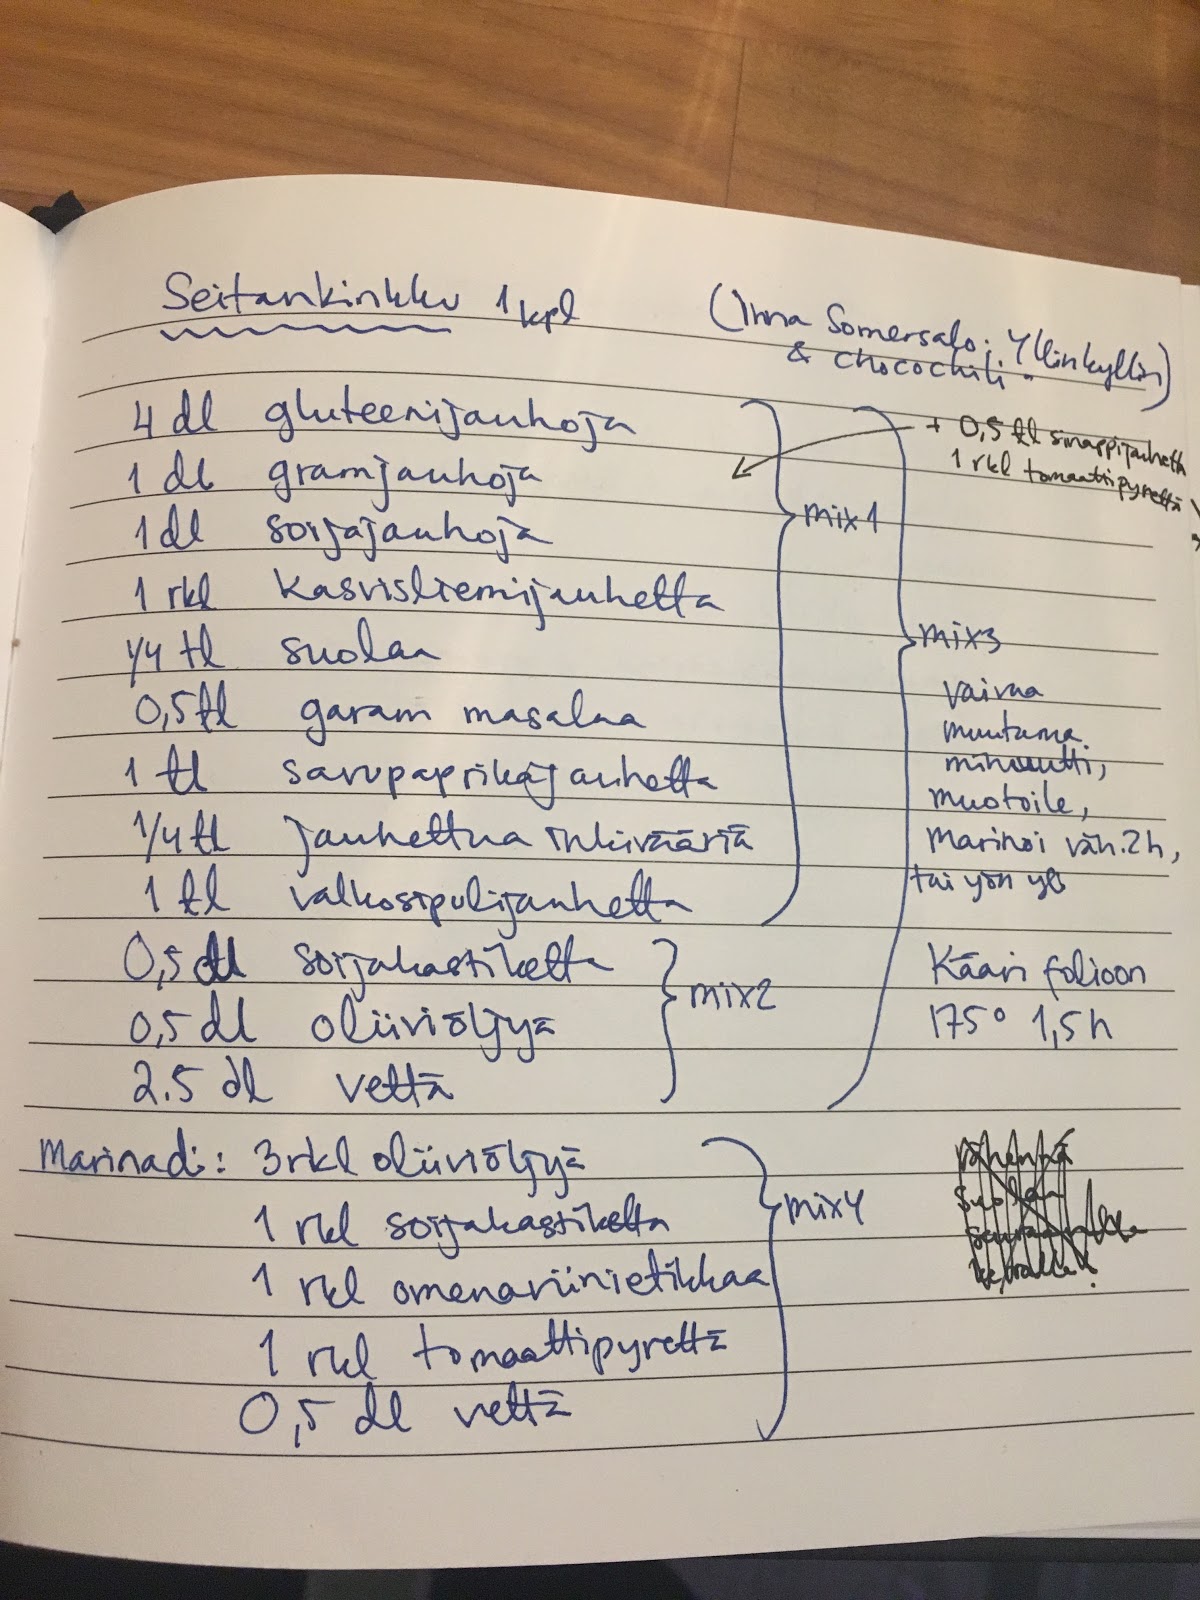 Seitankinkku 1 kpl
(Inna Somersalo: Yllinkyllin)
& chocochili
4 dl gluteenijauhoja
+ 0,5 tl sinappijauhetta
1 rkl tomaattipyrettä
1 dl gramjauhoja
1 dl soijajauhoja
mix1
1 rkl kasvisliemijauhetta
1/4 tl suolaa
mix3
0,5 tl garam masalaa
1 tl savupaprikajauhetta
1/4 tl jauhettua inkivääriä
1 tl valkosipulijauhetta
vaivaa
muutama
minuutti,
muotoile,
marinoi väh. 2h,
tai yön yli
0,5 dl soijakastiketta
0,5 dl oliiviöljyä
2.5 dl vettä
mix2
Kääri folioon
175° 1,5h
Marinadi: 3 rkl oliiviöljyä
1 rkl soijakastiketta
1 rkl omenaviinietikkaa
1 rkl tomaattipyrettä
0,5 dl vettä
mix4
vähennä
suolaa